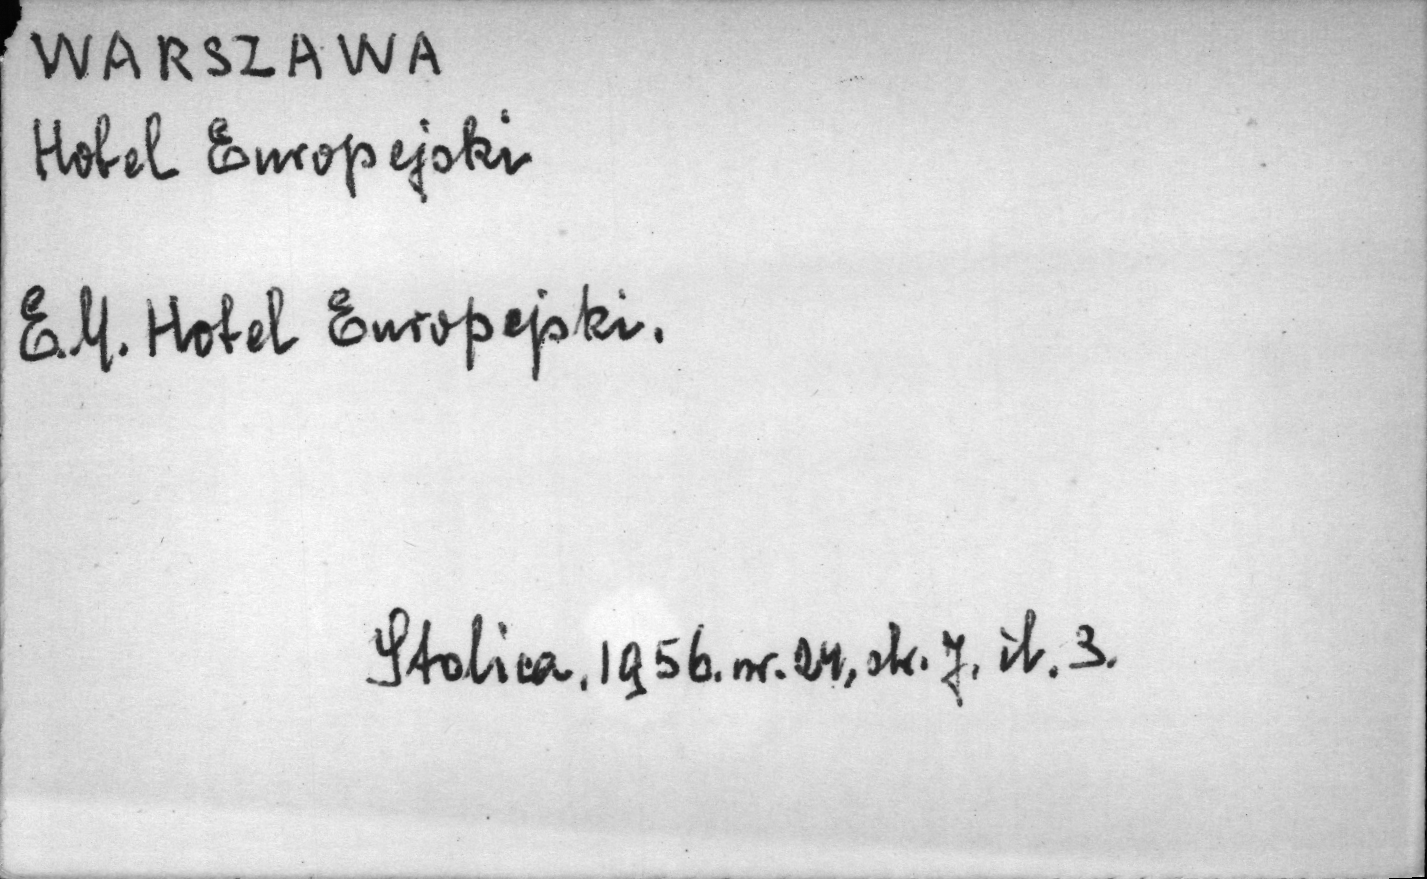 WARSZAWA
Hotel Europejski
E.M. Hotel Europejski.
Stolica. 1956. nr. 24, str. 7. il. 3.